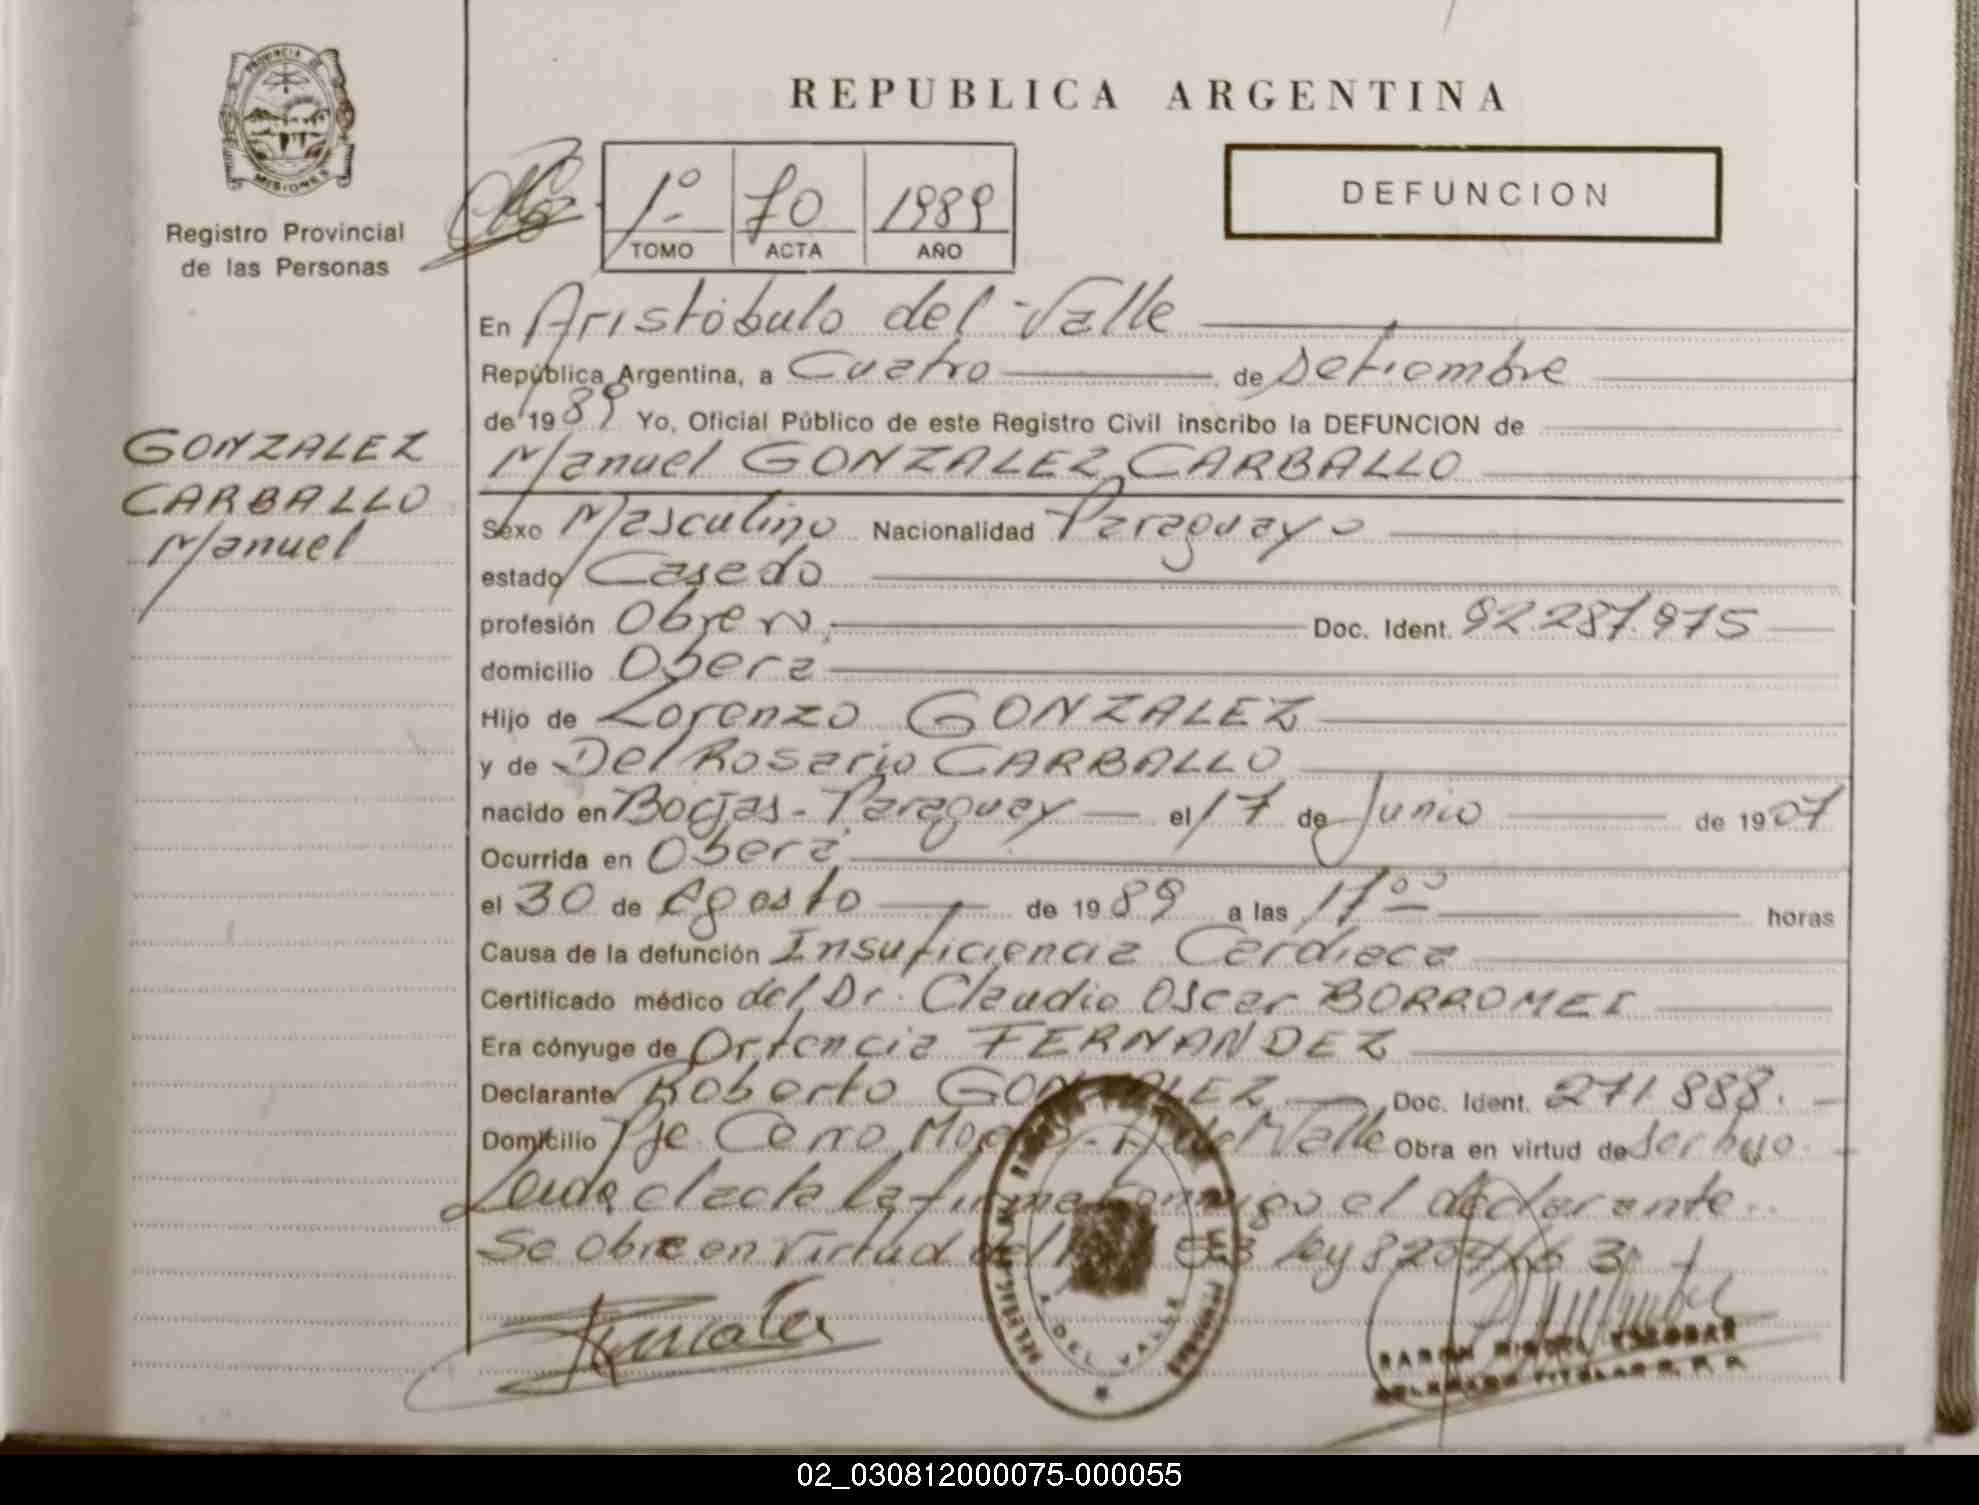 PROVINCIA DE
MISIONES
Registro Provincial
de las Personas
REPUBLICA ARGENTINA
1º 70 1989
TOMO ACTA AÑO
DEFUNCION
En Aristóbulo del Valle
República Argentina, a Cuatro de Setiembre
de 1989 Yo, Oficial Público de este Registro Civil inscribo la DEFUNCION de
GONZALEZ
CARBALLO
Manuel
Manuel GONZALEZ CARBALLO
Sexo Masculino Nacionalidad Paraguayo
estado Casado
profesión Obrero Doc. Ident. 92.287.975
domicilio Oberá
Hijo de Lorenzo GONZALEZ
y de Del Rosario CARBALLO
nacido en Borjas - Paraguay el 17 de Junio de 1907
Ocurrida en Oberá
el 30 de Agosto de 1989 a las 17ºº horas
Causa de la defunción Insuficiencia Cardiaca
Certificado médico del Dr. Claudio Oscar BORROMEI
Era cónyuge de Ortencia FERNANDEZ
Declarante Roberto GONZALEZ Doc. Ident. 271.888.
Domicilio Pje. Cerro Moreno - A. del Valle Obra en virtud de ser hijo.
Leida el acta la firma conmigo el declarante..
Se obra en virtud del ley 8204/63
A. DEL VALLE
ESCOBAR
DELEGADO TITULAR R. P. P.
02_030812000075-000055